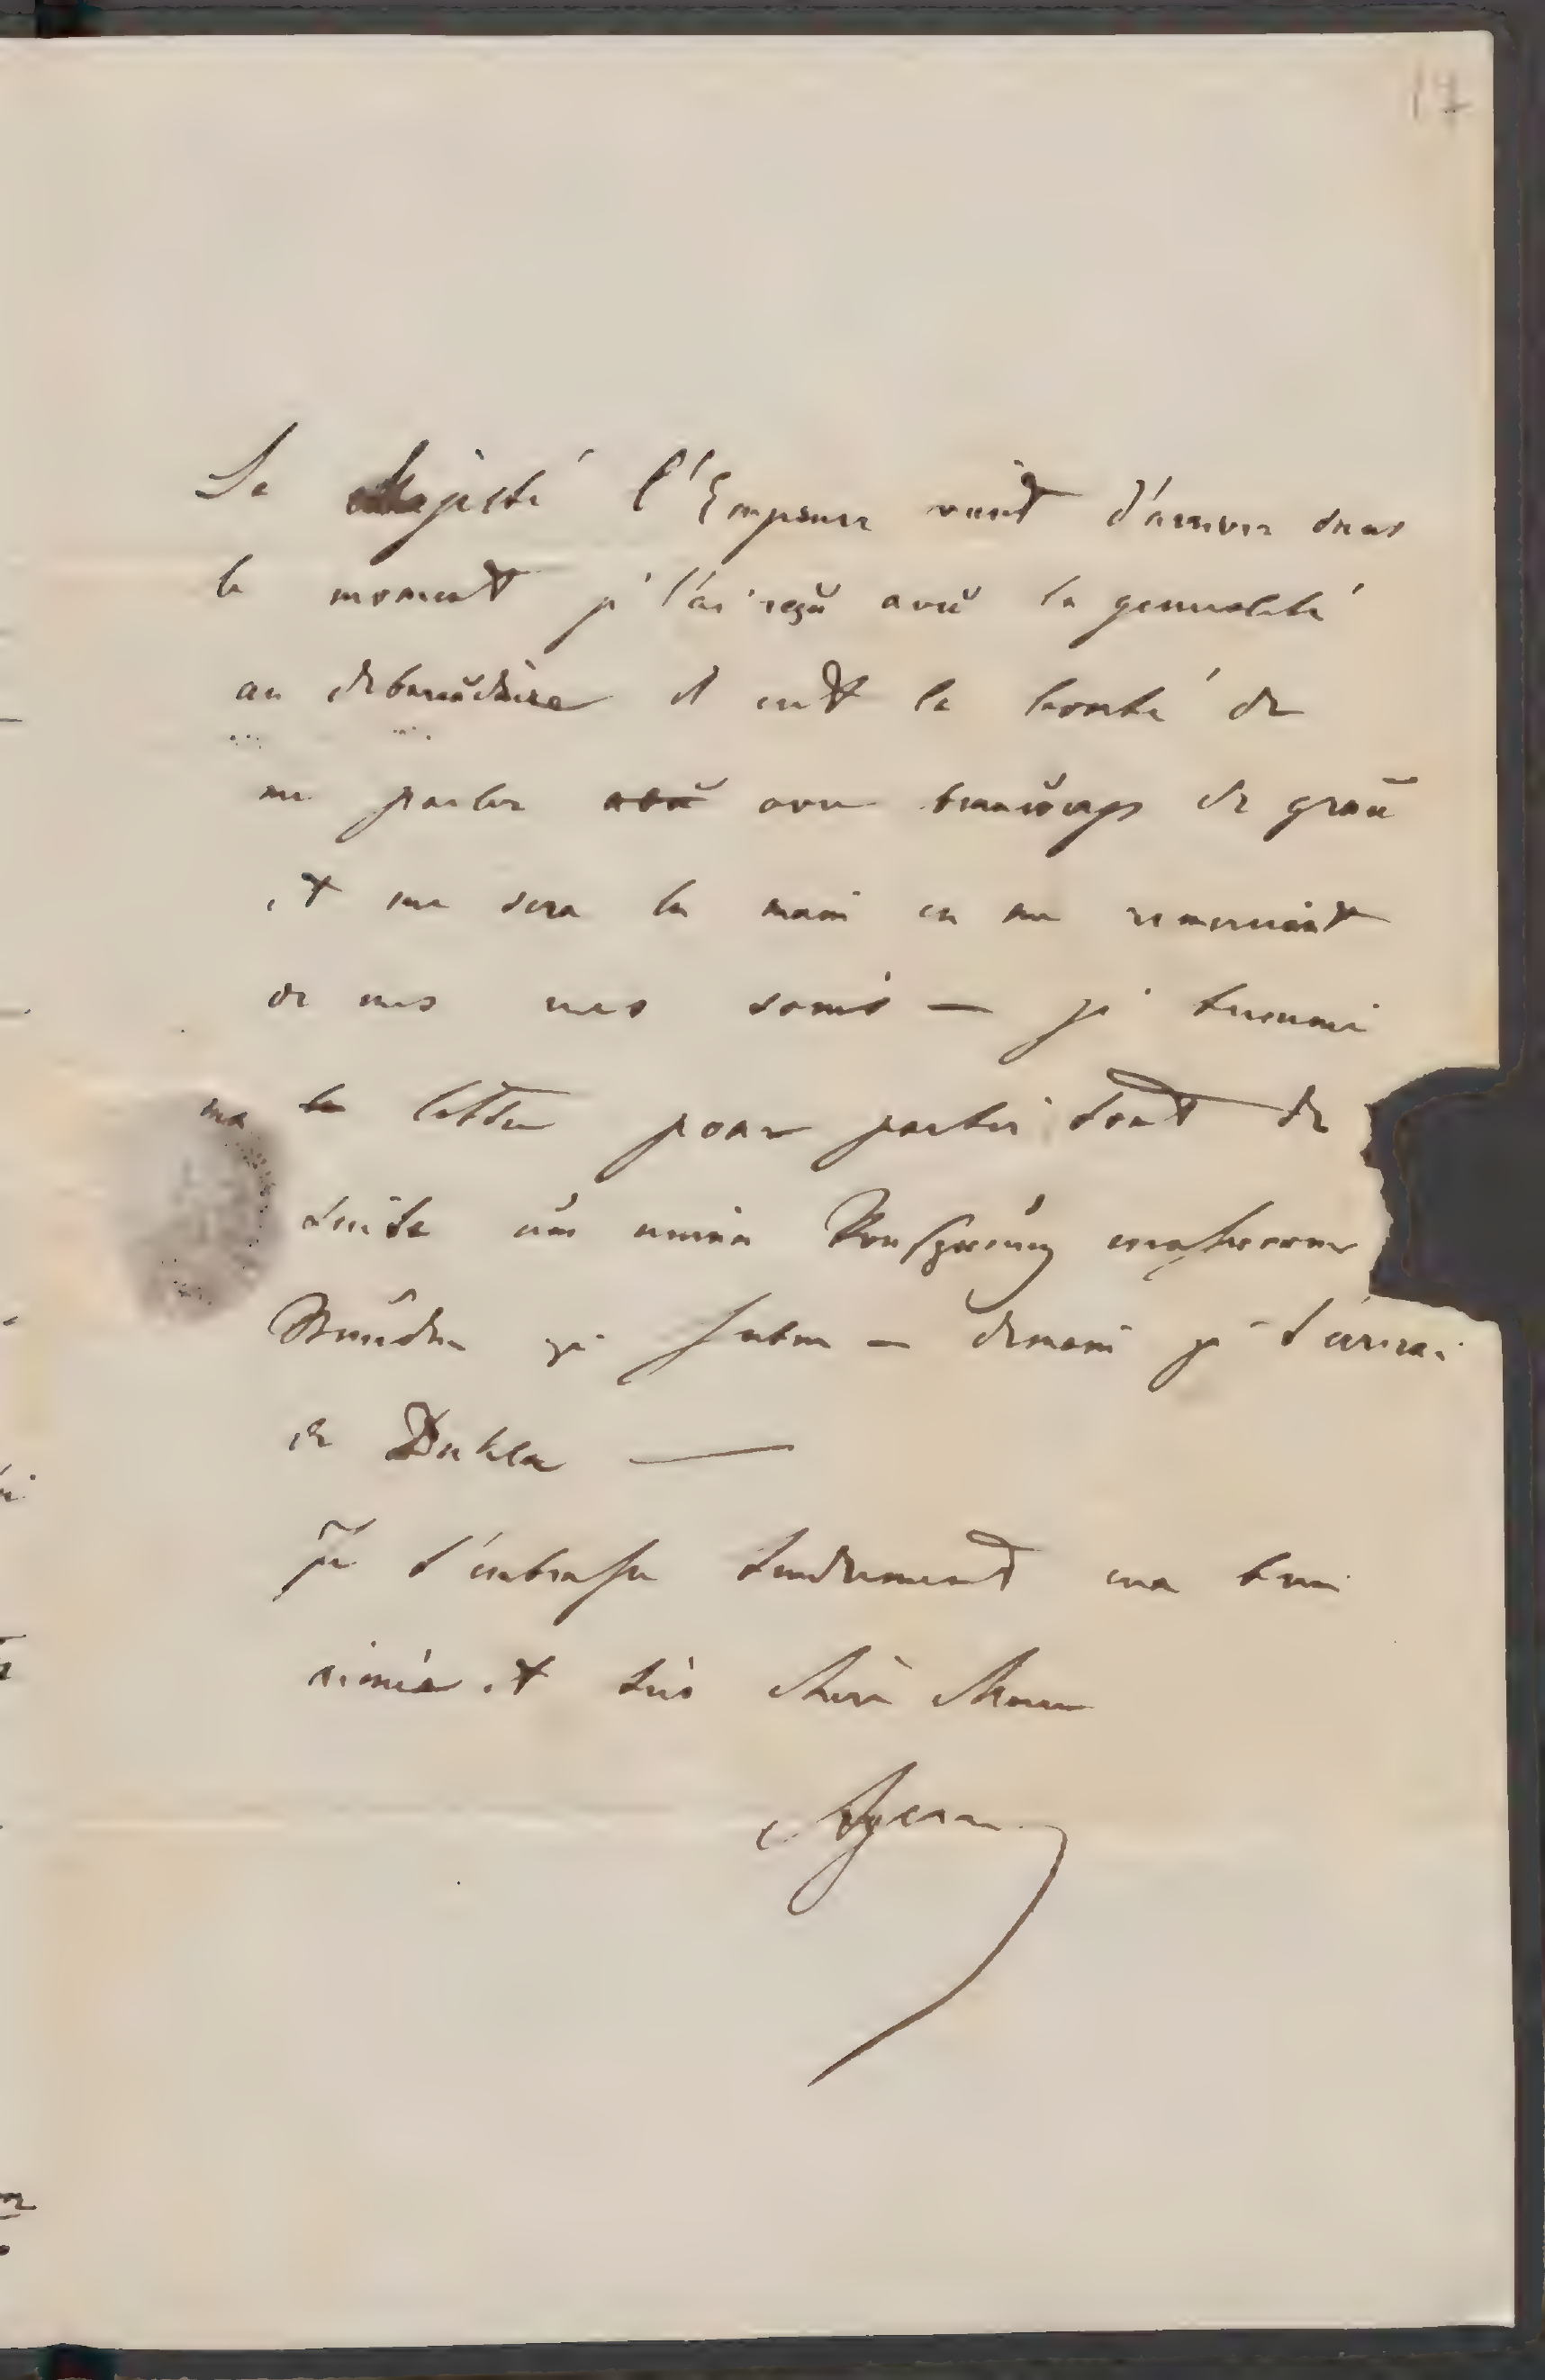 17
Sa Majesté l'Empereur vient d'arriver dans
le moment je l'ai reçu avec la generalité
au debarcadaire il eut la bonté de
me parler avec avec beaucoup de grace
et me sera la main en me remerciant
de mes soins — je termine
ma la lettre pour partir tout de
suite um meinen
Wunden zu — demain je t'écrirai
de Dukla —
Je t'embrasse tendrement ma bien
aimée et très chère